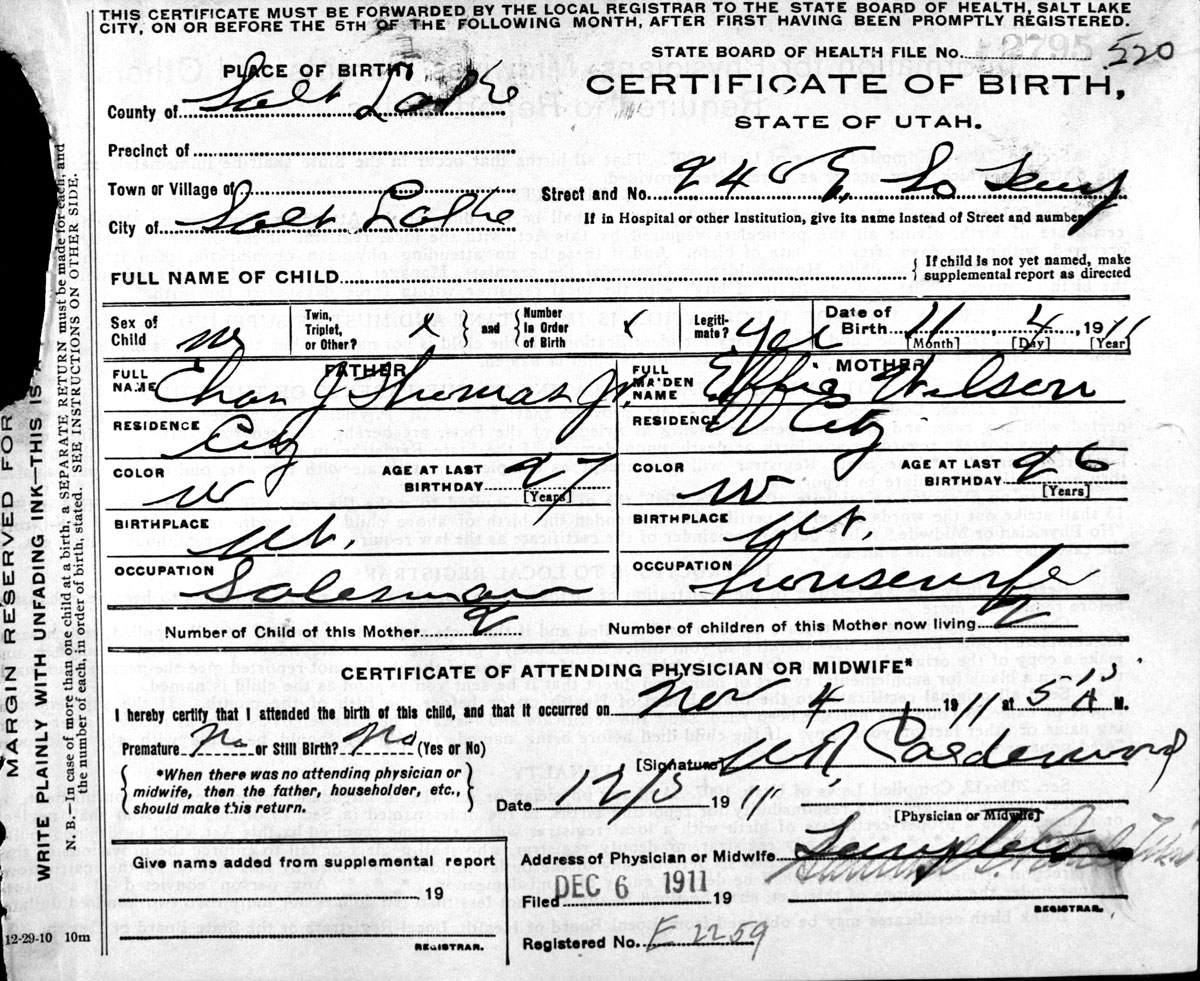 THIS CERTIFICATE MUST BE FORWARDED BY THE LOCAL REGISTRAR TO THE STATE BOARD OF HEALTH, SALT LAKE
CITY, ON OR BEFORE THE 5TH OF THE FOLLOWING MONTH, AFTER FIRST HAVING BEEN PROMPTLY REGISTERED.
STATE BOARD OF HEALTH FILE No. 2795 520
PLACE OF BIRTH
CERTIFICATE OF BIRTH,
County of Salt Lake
STATE OF UTAH.
Precinct of
Town or Village of
Street and No. 240 E, So Temp
City of Salt Lake
If in Hospital or other Institution, give its name instead of Street and number
FULL NAME OF CHILD
{ If child is not yet named, make
supplemental report as directed
Sex of Child m
Twin, Triplet, or Other?
and { Number in Order of Birth
Legiti-mate? yes
Date of Birth 11, 4, 1911
[Month] [Day] [Year]
FATHER
FULL NAME Chas J Thomas Jr.
RESIDENCE City
COLOR w
AGE AT LAST BIRTHDAY 27
[Years]
BIRTHPLACE Ut.
OCCUPATION Salesman
MOTHER
FULL MAIDEN NAME Effie Wilson
RESIDENCE City
COLOR w
AGE AT LAST BIRTHDAY 26
[Years]
BIRTHPLACE Ut
OCCUPATION Housewife
Number of Child of this Mother 2
Number of children of this Mother now living 2
CERTIFICATE OF ATTENDING PHYSICIAN OR MIDWIFE*
I hereby certify that I attended the birth of this child, and that it occurred on Nov 4, 1911 at 5 A M.
Premature No or Still Birth? No (Yes or No)
*When there was no attending physician or
midwife, then the father, householder, etc.,
should make this return.
[Signature] Calderwood
Date 12/5 1911
[Physician or Midwife]
Give name added from supplemental report
19
REGISTRAR.
Address of Physician or Midwife Templeton
Filed DEC 6 1911 19
REGISTRAR.
Registered No. E 2259
12-29-10 10m
MARGIN RESERVED FOR
WRITE PLAINLY WITH UNFADING INK—THIS IS A
N. B.—In case of more than one child at a birth, a SEPARATE RETURN must be made for each, and
the number of each, in order of birth, stated. SEE INSTRUCTIONS ON OTHER SIDE.